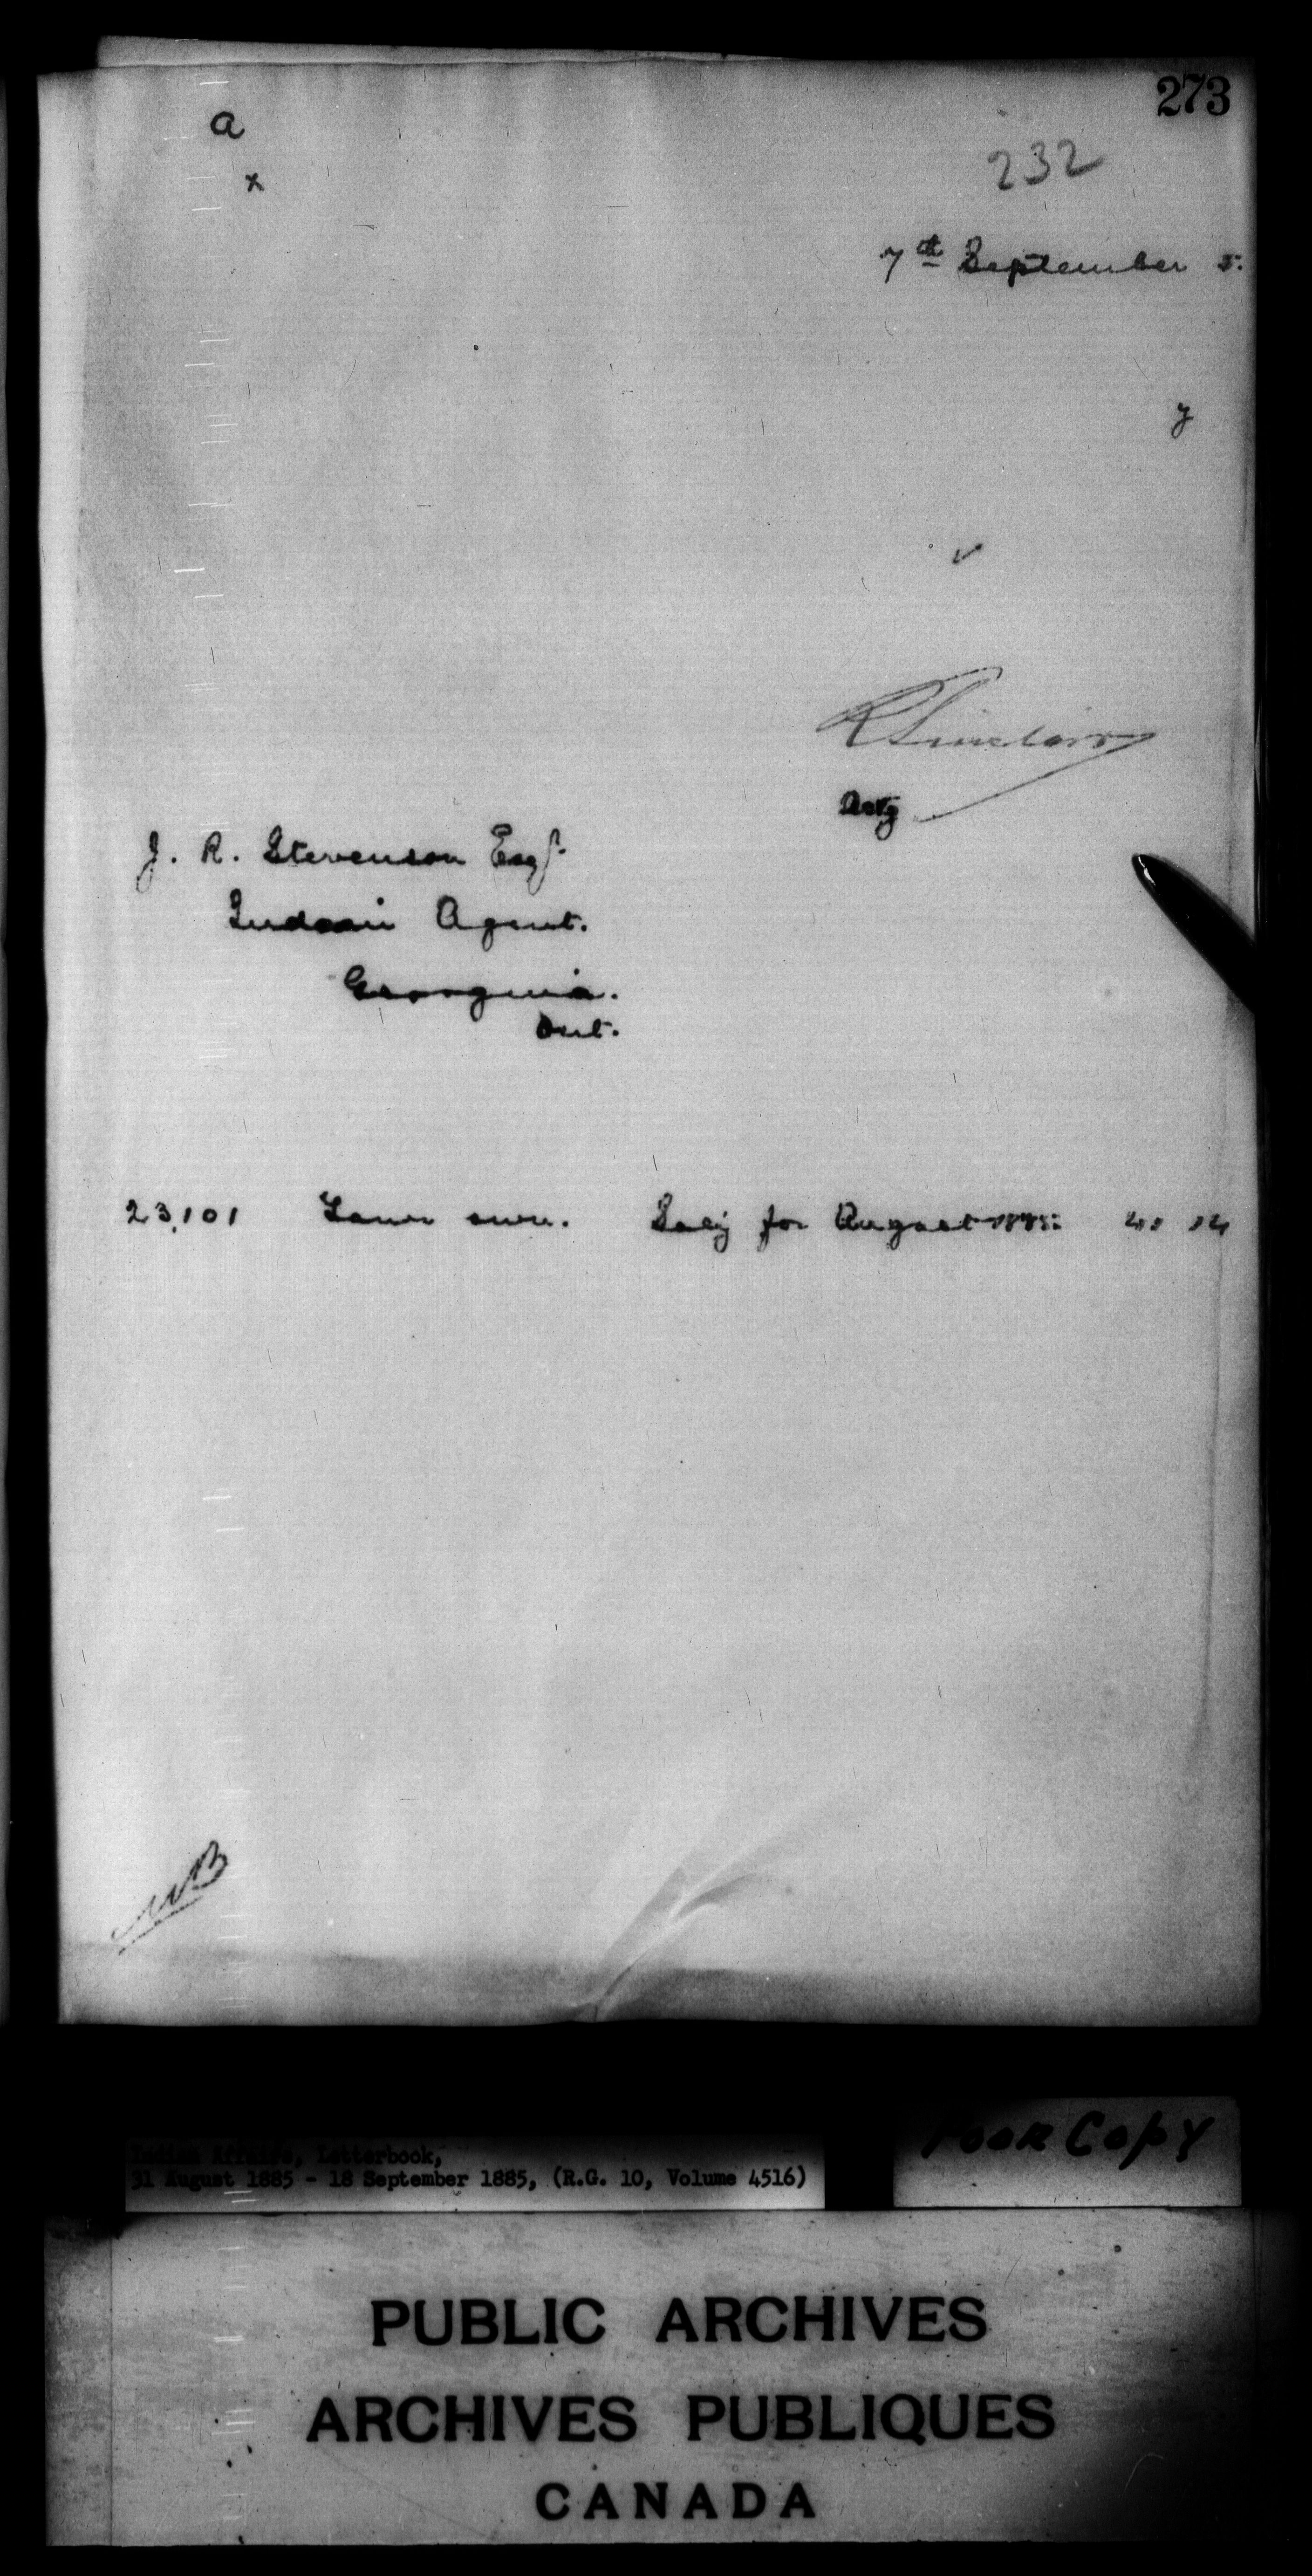 273
a
232
x
7th September 5.
y
R Sinclair
Actg
J. R. Stevenson Esqr.
Indian Agent.
Georgina.
Ont.
23,101 Your own. Saly for August 1885.
MB
Poor Copy
Indian Affairs, Letterbook,
31 August 1885 - 18 September 1885, (R.G. 10, Volume 4516)
PUBLIC ARCHIVES
ARCHIVES PUBLIQUES
CANADA